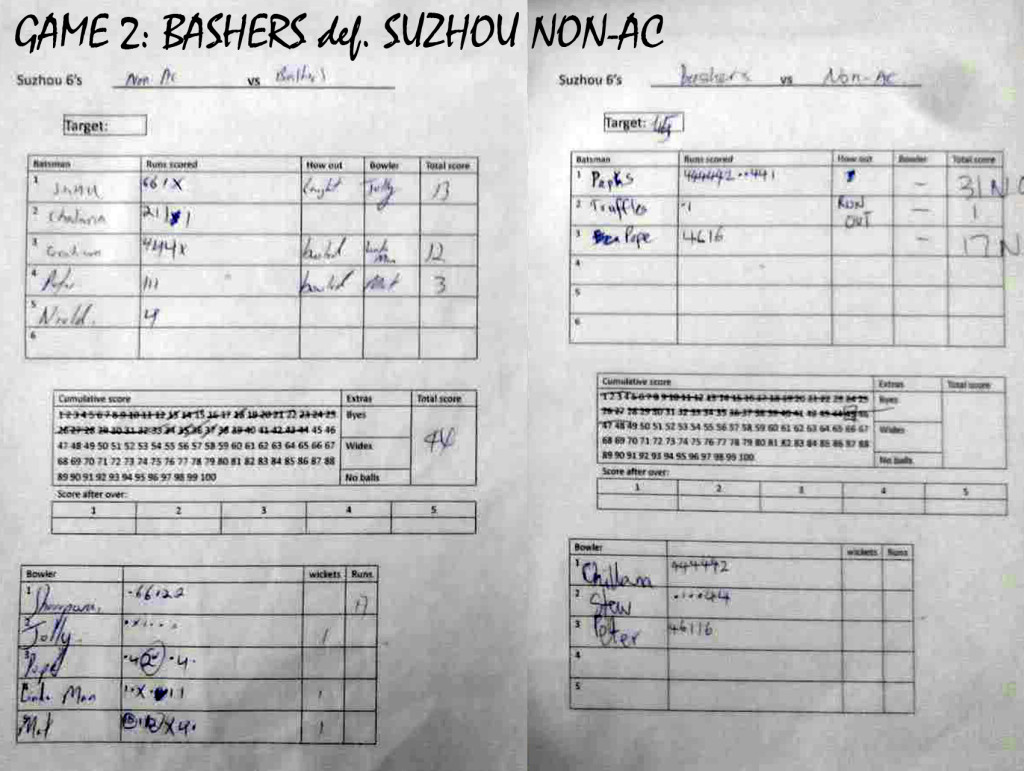 GAME 2: BASHERS def. SUZHOU NON-AC
Suzhou 6's Non Ac vs Bashers
Target:
Batsman Runs scored How out Bowler Total score
1 661X Caught Jolly 13
2 Chalana
3 444X bowled Man 12
4 111 bowled Mat 3
5 4
6
Cumulative score Extras Total score
1 2 3 4 5 6 7 8 9 10 11 12 13 14 15 16 17 18 19 20 21 22 23 24 25 Byes
26 27 28 29 30 31 32 33 34 35 36 37 38 39 40 41 42 43 44 45 46 44
47 48 49 50 51 52 53 54 55 56 57 58 59 60 61 62 63 64 65 66 67 Wides
68 69 70 71 72 73 74 75 76 77 78 79 80 81 82 83 84 85 86 87 88
89 90 91 92 93 94 95 96 97 98 99 100 No balls
Score after over:
1 2 3 4 5
Bowler wickets Runs
1 ·66122 17
2 Jolly ·X···· 1
3 Pope ·4 2 ·4·
4 Man 1·X· 11 1
5 Mat X4· 1
Suzhou 6's bashers vs Non-AC
Target: 45
Batsman Runs scored How out Bowler Total score
1 Parks 444442··441 — 31 NO
2 Truffles ·1 RUN OUT — 1
3 Pope 4616 — 17 N
4
5
6
Cumulative score Extras Total score
1 2 3 4 5 6 7 8 9 10 11 12 13 14 15 16 17 18 19 20 21 22 23 24 25 Byes
26 27 28 29 30 31 32 33 34 35 36 37 38 39 40 41 42 43 44 45 46
47 48 49 50 51 52 53 54 55 56 57 58 59 60 61 62 63 64 65 66 67 Wides
68 69 70 71 72 73 74 75 76 77 78 79 80 81 82 83 84 85 86 87 88
89 90 91 92 93 94 95 96 97 98 99 100 No balls
Score after over:
1 2 3 4 5
Bowler wickets Runs
1 Chillana 444442
2 Stew ····44
3 Peter 46116
4
5